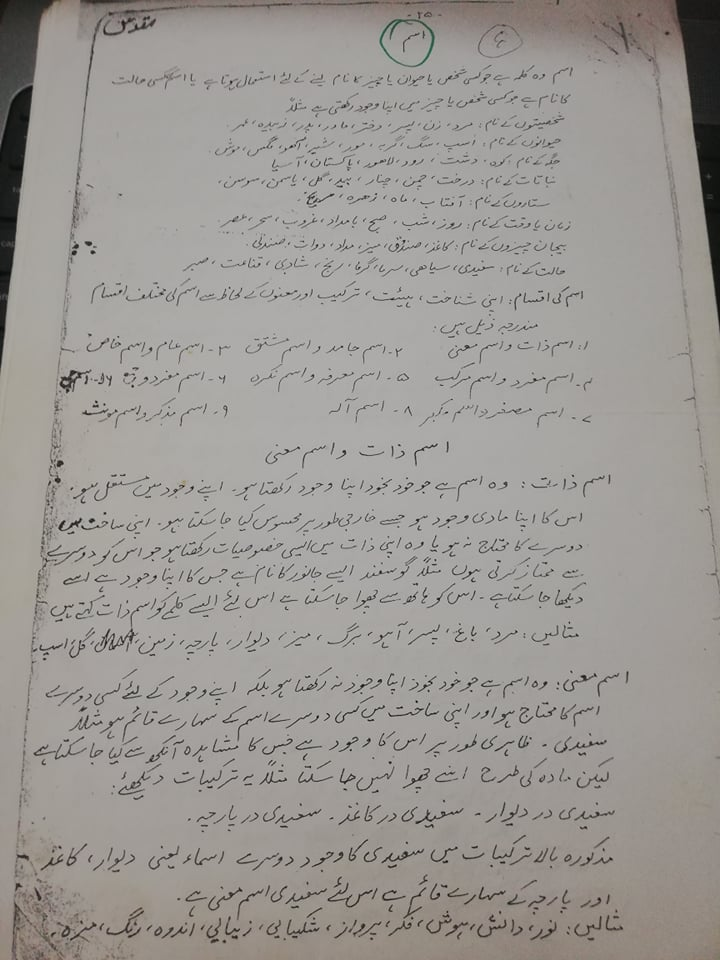 -۲۵-
مقدس
اسم
اسم وہ کلمہ ہے جو کسی شخص یا حیوان یا چیز کا نام لینے کے لئے استعمال ہوتا ہے یا اسم کسی حالت
کا نام ہے جو کسی شخص یا چیز میں اپنا وجود رکھتی ہے مثلاً
شخصیتوں کے نام: مرد، زن، پسر، دختر، مادر، پدر، زبیدہ، عمر۔
حیوانوں کے نام: اسپ، سگ، گربہ، مور، شیر، آھو، مگس، موش۔
جگہ کے نام: کوہ، دشت، رود، لاھور، پاکستان، آسیا
نباتات کے نام: درخت، چمن، چنار، بید، گل، یاسمن، سوسن،
ستاروں کے نام: آفتاب، ماہ، زھرہ، مریخ۔
زمان یا وقت کے نام: روز، شب، صبح، بامداد، غروب، سحر، عصر۔
بیجان چیزوں کے نام: کاغذ، صندوق، میز، مداد، دوات، صندلی۔
حالت کے نام: سفیدی، سیاھی، سرما، گرما، رنج، شادی، قناعت، صبر
اسم کی اقسام: اپنی شناخت، ہیئت، ترکیب اور معنوں کے لحاظ سے اسم کی مختلف اقسام
مندرجہ ذیل ہیں:
۱: اسم ذات و اسم معنی ۲۔ اسم جامد و اسم مشتق ۳۔ اسم عام و اسم خاص
۴۔ اسم مفرد و اسم مرکب ۵۔ اسم معرفہ و اسم نکرہ ۶۔ اسم مفرد و
۷۔ اسم مصغر و اسم مکبر ۸۔ اسم آلہ ۹۔ اسم مذکر و اسم مونث
اسم ذات و اسم معنی
اسم ذات: وہ اسم ہے جو خود بخود اپنا وجود رکھتا ہو۔ اپنے وجود میں مستقل ہو۔
اس کا اپنا مادی وجود ہو جسے خارجی طور پر محسوس کیا جا سکتا ہو۔ اپنی ساخت میں
دوسرے کا محتاج نہ ہو یا وہ اپنی ذات میں ایسی خصوصیات رکھتا ہو جو اس کو دوسرے
سے ممتاز کرتی ہوں مثلاً گوسفند ایسے جانور کا نام ہے جس کا اپنا وجود ہے اسے
دیکھا جا سکتا ہے۔ اس کو ہاتھ سے چھوا جا سکتا ہے اس لئے ایسے کلمے کو اسم ذات کہتے ہیں
مثالیں: مرد، باغ، پسر، آہو، برگ، میز، دیوار، پارچہ، زمین، گل، اسپ
اسم معنی: وہ اسم ہے جو خود بخود اپنا وجود نہ رکھتا ہو بلکہ اپنے وجود کے لئے کسی دوسرے
اسم کا محتاج ہو اور اپنی ساخت میں کسی دوسرے اسم کے سہارے قائم ہو مثلاً
سفیدی۔ ظاہری طور پر اس کا وجود ہے جس کا مشاہدہ آنکھ سے کیا جا سکتا ہے
لیکن مادہ کی طرح اسے چھوا نہیں جا سکتا مثلاً یہ ترکیبات دیکھئے:
سفیدی در دیوار۔ سفیدی در کاغذ۔ سفیدی در پارچہ۔
مذکورہ بالا ترکیبات میں سفیدی کا وجود دوسرے اسماء یعنی دیوار، کاغذ
اور پارچہ کے سہارے قائم ہے اس لئے سفیدی اسم معنی ہے۔
مثالیں: نور، دانش، ہوش، فکر، پرواز، شکیبایی، زیبایی، اندوہ، رنگ، مزہ۔